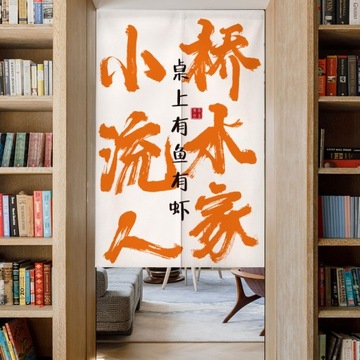 小桥
流水
人家
桌上有鱼有虾